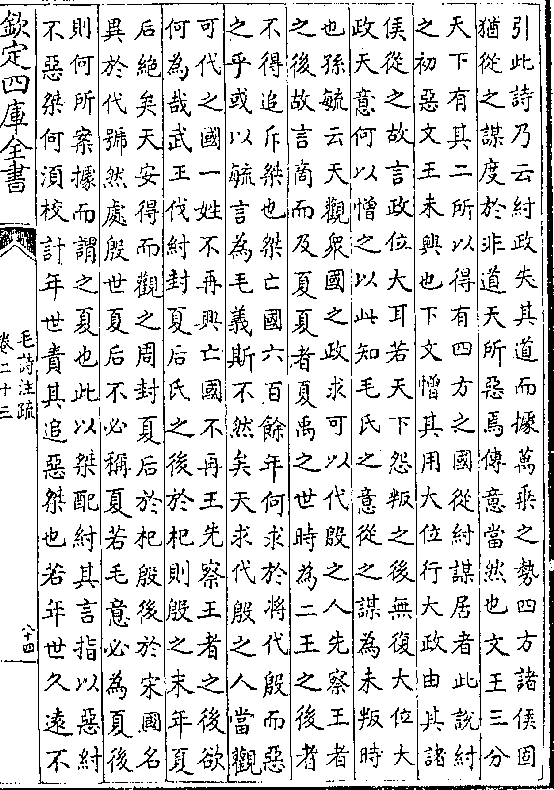 引此詩乃云紂政失其道而據萬乗之勢四方諸侯固
猶從之謀度於非道天所惡焉傳意當然也文王三分
天下有其二所以得有四方之國從紂謀居者此說紂
之初惡文王未興也下文憎其用大位行大政由其諸
侯從之故言政位大耳若天下怨叛之後無復大位大
政天意何以憎之以此知毛氏之意從之謀為未叛時
也孫毓云天觀衆國之政求可以代殷之人先察王者
之後故言商而及夏夏者夏禹之世時為二王之後者
不得追斥桀也桀亡國六百餘年何求於將代殷而惡
之乎或以毓言為毛義斯不然矣天求代殷之人當觀
可代之國一姓不再興亡國不再王先察王者之後欲
何為哉武王伐紂封夏后氏之後於杞則殷之末年夏
后絶矣天安得而觀之周封夏后於杞殷後於宋國名
異於代號然處殷世夏后不必稱夏若毛意必為夏後
則何所案據而謂之夏也此以桀配紂其言指以惡紂
不惡桀何湏校計年世責其追惡桀也若年世久遠不
欽定四庫全書
毛詩注疏
卷二十三
八十四